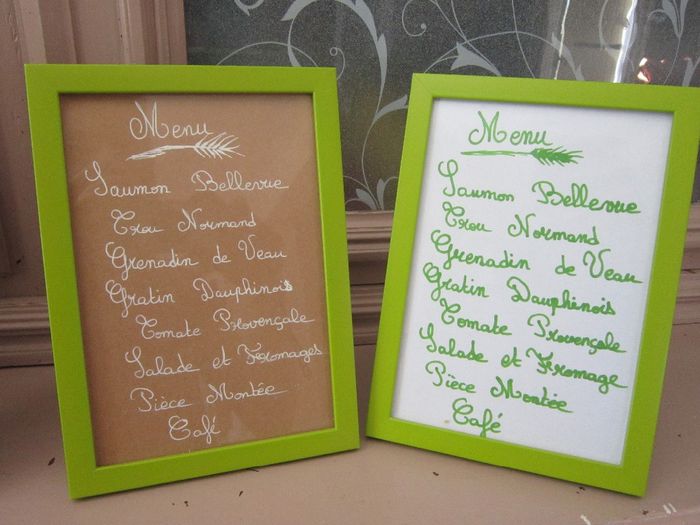 Menu
Saumon Bellevue
Trou Normand
Grenadin de Veau
Gratin Dauphinois
Tomate Provençale
Salade et Fromages
Pièce Montée
Café
Menu
Saumon Bellevue
Trou Normand
Grenadin de Veau
Gratin Dauphinois
Tomate Provençale
Salade et Fromage
Pièce Montée
Café